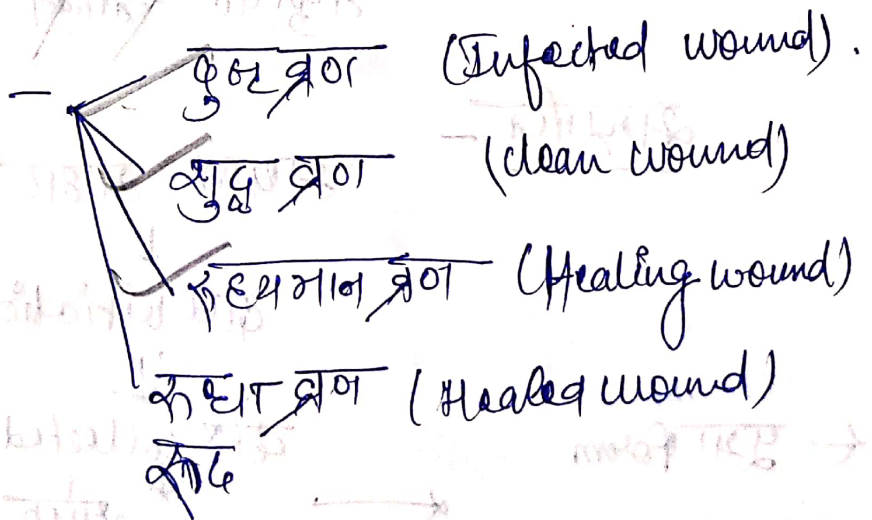 दुष्ट व्रण (Infected wound).
शुद्ध व्रण (clean wound)
रुहयमान व्रण (Healing wound)
रुधा व्रण (Healed wound)
रूढ